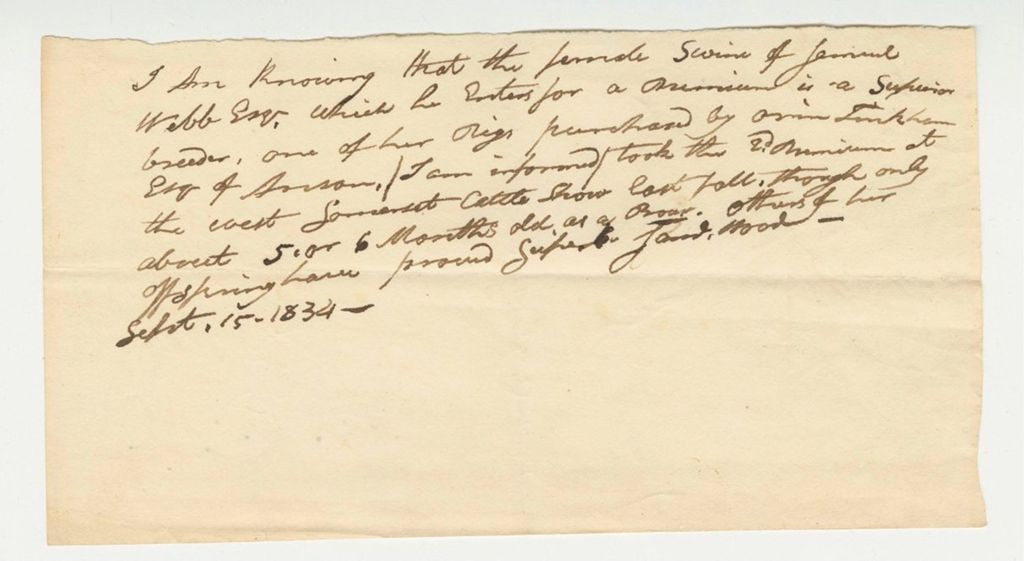 I Am Knowing that the female Swine of Samuel
Webb Esqr. which he Enters for a Premium is a Superior
breeder, one of her Pigs purchased by Orrin Tinkham
Esq of Anson, (I am informed) took the 2d. Premium at
the west Somerset Cattle Show last fall, though only
about 5. or 6 Months old, as a Boar. others of her
offspring have proved Superb. Saml. Wood —
Sept. 15 - 1834 —